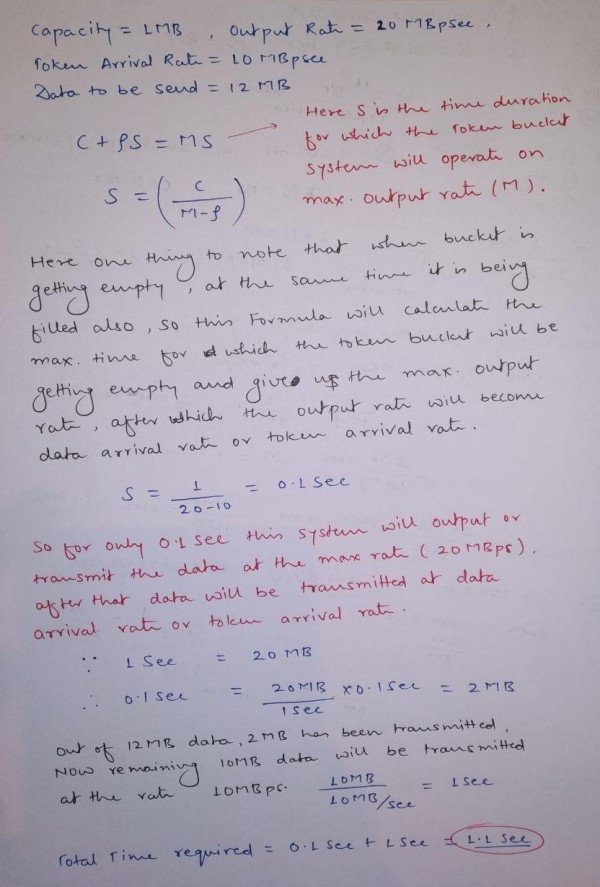 Capacity = 1MB , Output Rate = 20 MBpsec .
Token Arrival Rate = 10 MBpsec
Data to be send = 12 MB
C + ρS = MS → Here S is the time duration
for which the Token bucket
system will operate on
max. output rate (M).
S = (C / M-ρ)
Here one thing to note that when bucket is
getting empty, at the same time it is being
filled also, so this Formula will calculate the
max. time for which the token bucket will be
getting empty and give us the max. output
rate, after which the output rate will become
data arrival rate or token arrival rate.
S = 1 / 20-10 = 0.1 Sec
So for only 0.1 sec this system will output or
transmit the data at the max rate (20MBps).
after that data will be transmitted at data
arrival rate or token arrival rate.
∵ 1 Sec = 20 MB
∴ 0.1 Sec = 20MB / 1 sec x 0.1 Sec = 2 MB
Out of 12MB data, 2MB has been transmitted,
Now remaining 10MB data will be transmitted
at the rate 10MBps. 10MB / 10MB/sec = 1 sec
Total Time required = 0.1 Sec + 1 Sec = 1.1 Sec